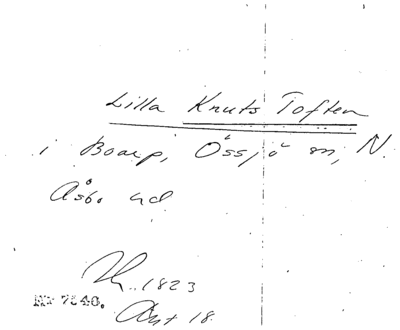 Lilla Knuts Toften
i Boarp, Össjö sn, N.
Åsbo hd
1823
NP 7540.
18